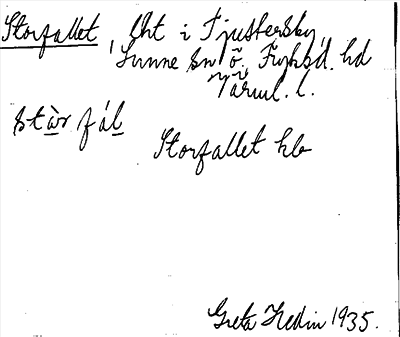 Storfallet, Lht i Tjustersby,
Sunne sn Ö. Fryksd. hd
Värml. l.
stàr fál
Storfallet hb
Greta Hedin 1935.